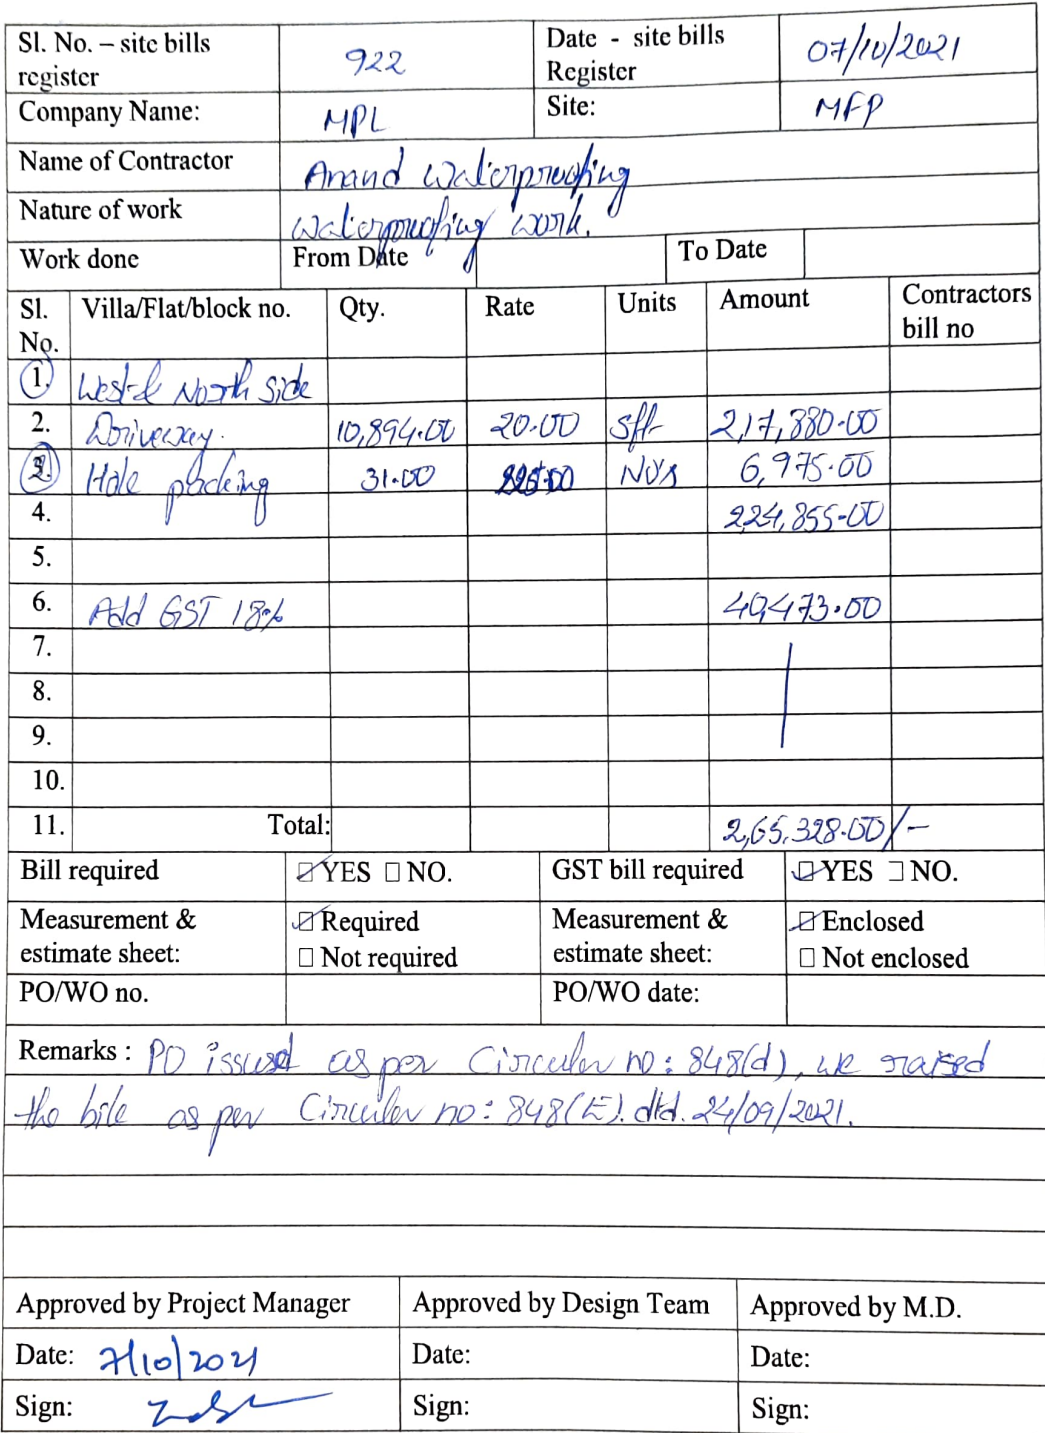 Sl. No. – site bills register 922 Date - site bills Register 07/10/2021
Company Name: MPL Site: MFP
Name of Contractor Anand Waterproofing
Nature of work Waterproofing work.
Work done From Date To Date
Sl. No. Villa/Flat/block no. Qty. Rate Units Amount Contractors bill no
1. West & North Side
2. Driveway. 10,894.00 20.00 Sft 2,17,880.00
3. Hole packing 31.00 225.00 NO's 6,975.00
4. 224,855.00
5.
6. Add GST 18% 40,473.00
7.
8.
9.
10.
11. Total: 2,65,328.00/-
Bill required ☑ YES ☐ NO. GST bill required ☑ YES ☐ NO.
Measurement & estimate sheet: ☑ Required ☐ Not required Measurement & estimate sheet: ☑ Enclosed ☐ Not enclosed
PO/WO no. PO/WO date:
Remarks : PO issued as per Circular no: 848(d), we raised
the bile as per Circular no: 848(E). dtd. 24/09/2021.
Approved by Project Manager Approved by Design Team Approved by M.D.
Date: 7/10/2021 Date: Date:
Sign: Sign: Sign: